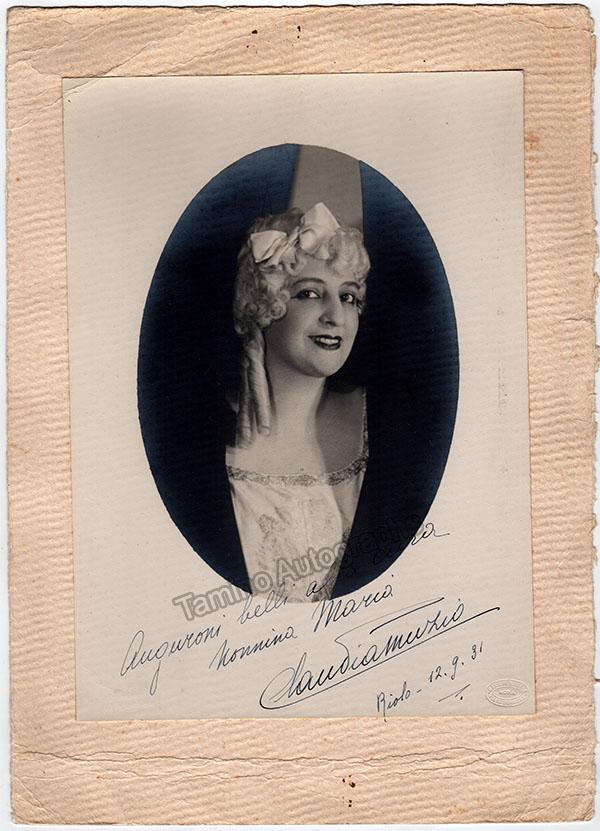 Auguroni belli alla cara
Nonnina Maria
Claudia Muzio
Riolo - 12.9.31
Tamino Autographs